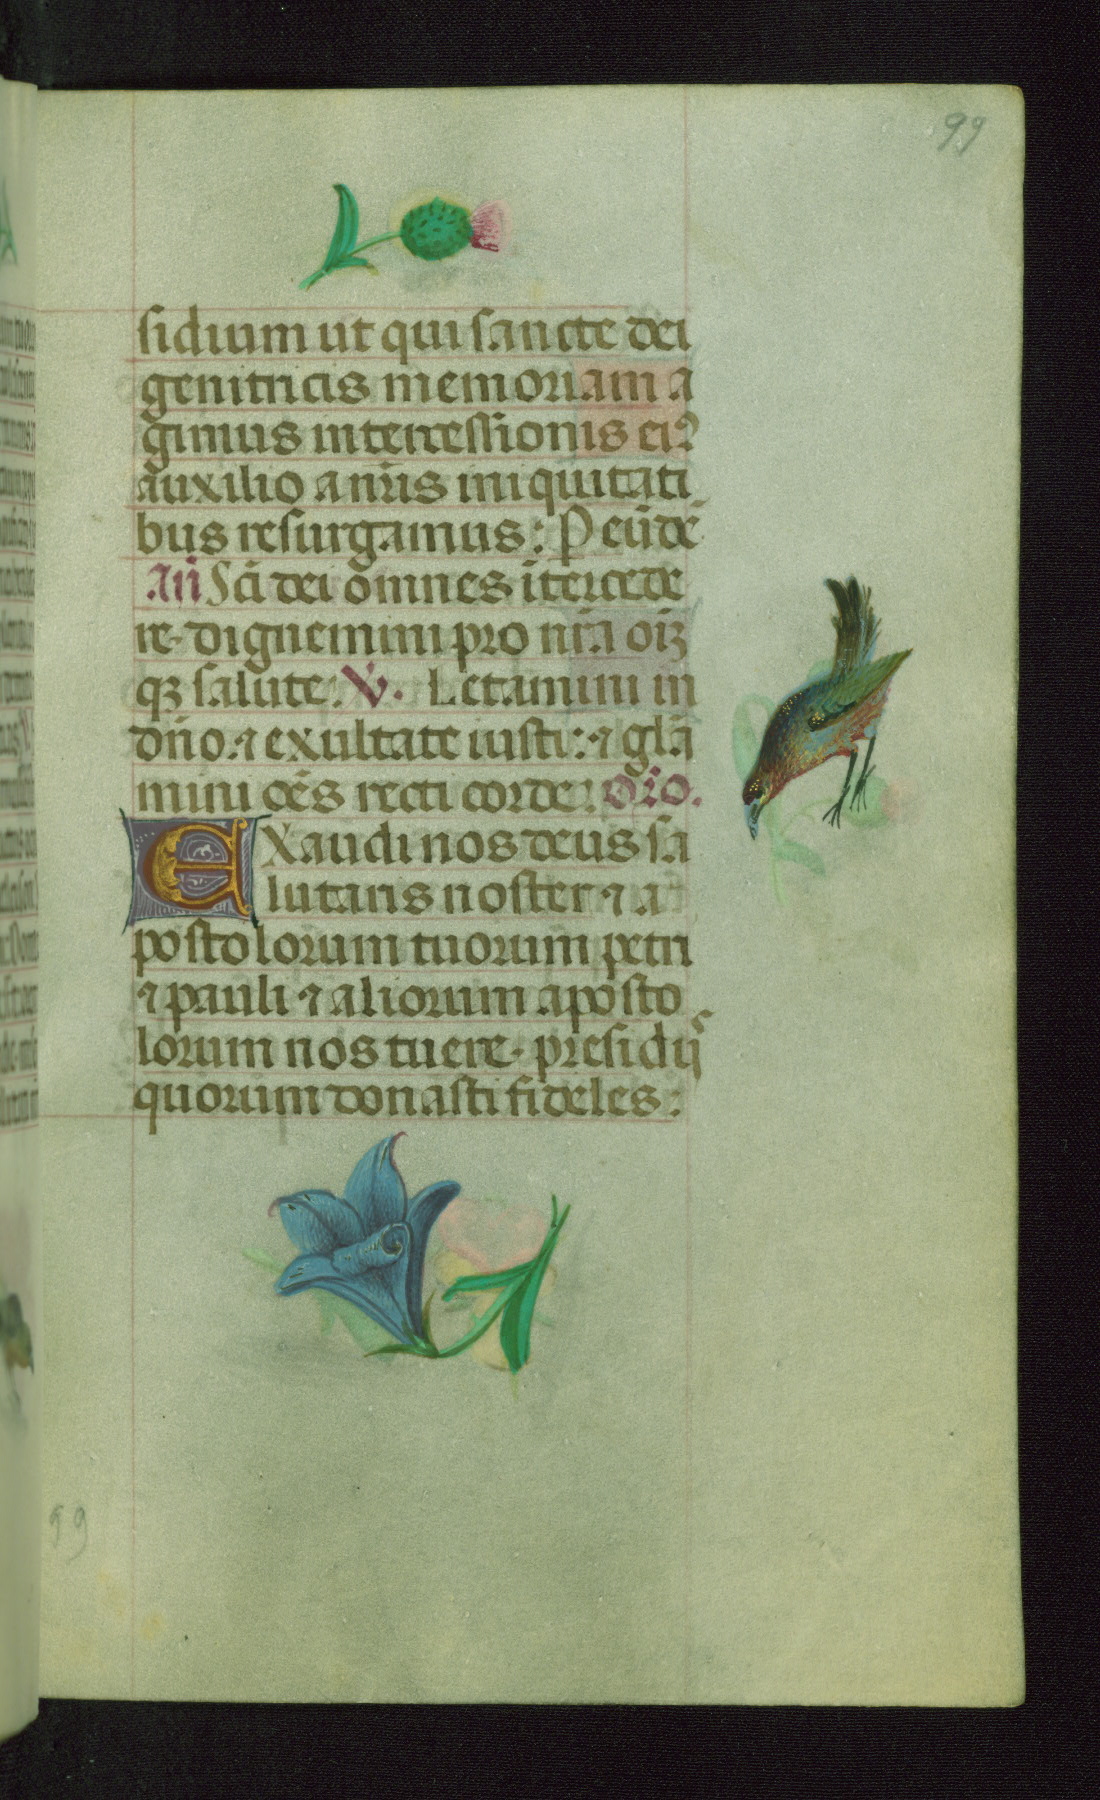 99
sidium ut qui sancte dei
genitricis memoriam a
gimus intercessionis ei⁹
auxilio a nr̄is iniquitati
bus resurgamus: P eūdē
An̄ Sc̄i dei omnes ītercede
re· dignemini pro nr̄a oīꝫ
qꝫ salute. V̇. Letamini in
dn̄o. ⁊ exultate iusti: ⁊ gl̄a
mini oēs recti corde. Or̄o.
EXaudi nos deus sa
lutaris noster ⁊ a
postolorum tuorum petri
⁊ pauli ⁊ aliorum aposto
lorum nos tuere· presidijs
quorum donasti fideles:
99